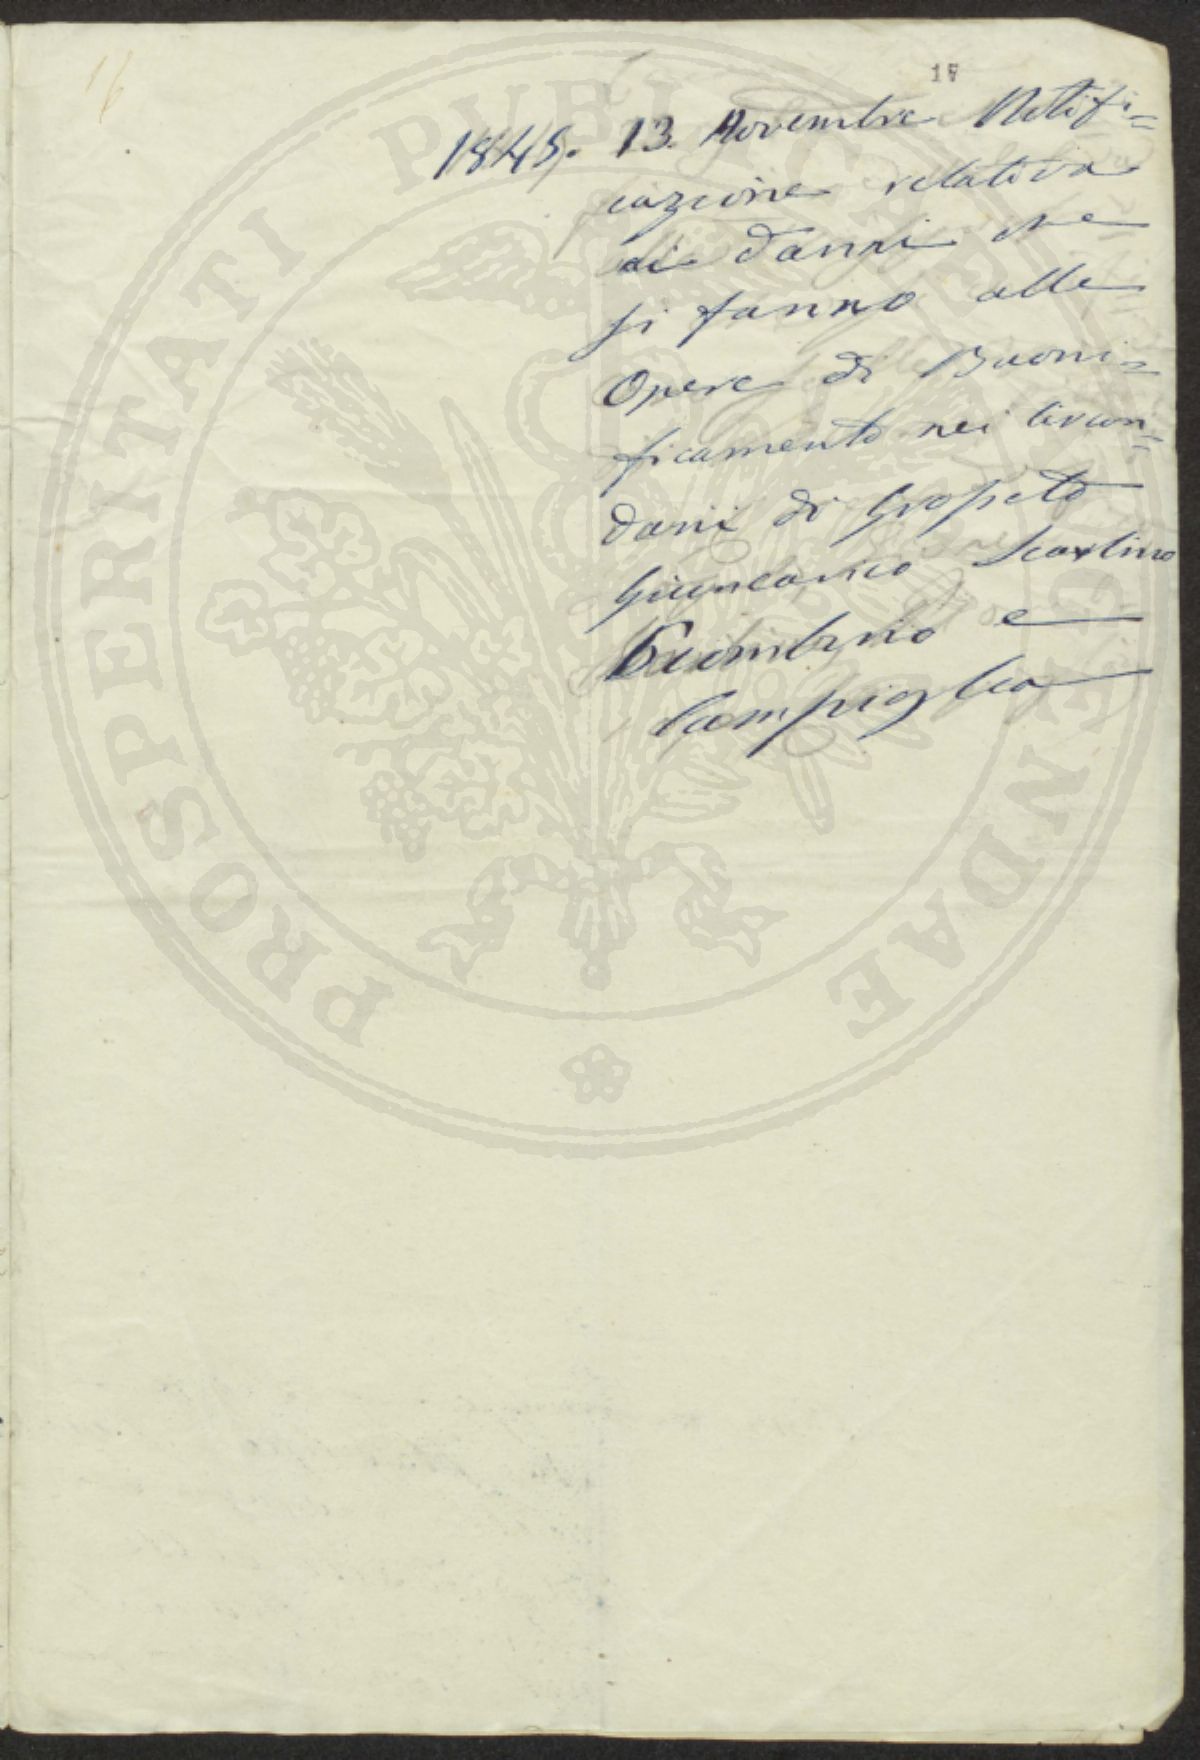 16
17
1845. 13. Novembre Notifi=
cazione relativa
ai danni che
si fanno alle
Opere di Buoni=
ficamento nei Circon=
dari di Grosseto
Giuncarico Scarlino
Piombino e
Campiglia
PROSPERITATI PUBLICAE AUGENDAE